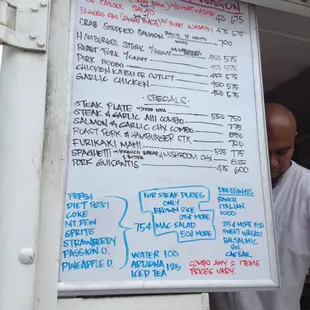 CRAB STUFFED SALMON
HAMBURGER STEAK W/GRAVY 700
ROAST PORK W/GRAVY 450 575
PORK ADOBO 450 575
CHICKEN KATSU OR CUTLET 450 575
GARLIC CHICKEN 450 575
SPECIALS
STEAK PLATE
STEAK & GARLIC AHI COMBO 550 750
SALMON & GARLIC CHX COMBO 775
ROAST PORK & HAMBURGER STK
FURIKAKI MAHI 700
SPAGHETTI
PORK GUISANTES 475 600
PEPSI
DIET PEPSI
COKE
MT. DEW
SPRITE
STRAWBERRY
PASSION O.
PINEAPPLE O.
75¢
FOR STEAK PLATES
ONLY
BROWN RICE
25¢ MORE
MAC SALAD
50¢ MORE
WATER 100
ICED TEA 125
DRESSINGS
RANCH
ITALIAN
25¢ MORE FOR
SWEET WASABI
BALSAMIC
VIN.
CAESAR
COMBO ANY 2 ITEMS
PRICES VARY.